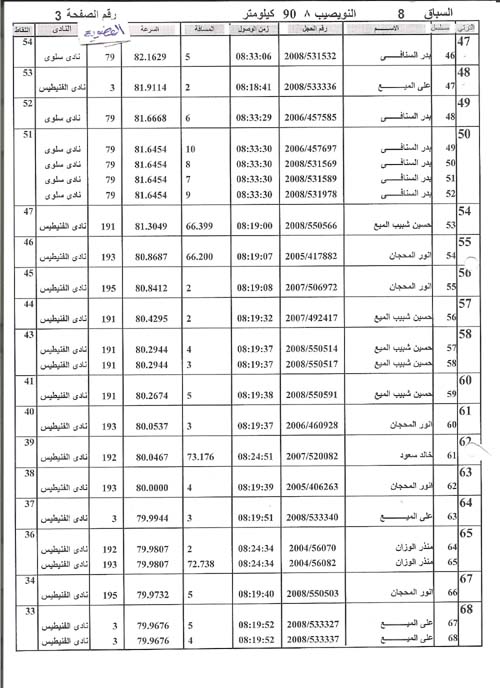 السباق 8 النويصيب ٨ 90 كيلومتر رقم الصفحة 3
الترتي مسلسل الاســـم رقم الحجل زمن الوصول المسافة السرعة العضوية النادى النقاط
47 54
46 بدر السنافـــى 2008/531532 08:33:06 5 82.1629 79 نادى سلوى
48 53
47 على الميـــع 2008/533336 08:18:41 2 81.9114 3 نادى الفنيطيس
49 52
48 بدر السنافـــى 2006/457585 08:33:29 6 81.6668 79 نادى سلوى
50 51
49 بدر السنافـــى 2006/457697 08:33:30 10 81.6454 79 نادى سلوى
50 بدر السنافـــى 2008/531569 08:33:30 8 81.6454 79 نادى سلوى
51 بدر السنافـــى 2008/531589 08:33:30 7 81.6454 79 نادى سلوى
52 بدر السنافـــى 2008/531978 08:33:30 9 81.6454 79 نادى سلوى
54 47
53 حسين شبيب الميع 2008/550566 08:19:00 66.399 81.3049 191 نادى الفنيطيس
55 46
54 انور المحجان 2005/417882 08:19:07 66.200 80.8687 193 نادى الفنيطيس
56 45
55 انور المحجان 2007/506972 08:19:08 2 80.8412 195 نادى الفنيطيس
57 44
56 حسين شبيب الميع 2007/492417 08:19:32 2 80.4295 191 نادى الفنيطيس
58 43
57 حسين شبيب الميع 2008/550514 08:19:37 4 80.2944 191 نادى الفنيطيس
58 حسين شبيب الميع 2008/550517 08:19:37 3 80.2944 191 نادى الفنيطيس
60 41
59 حسين شبيب الميع 2008/550591 08:19:38 5 80.2674 191 نادى الفنيطيس
61 40
60 انور المحجان 2006/460928 08:19:37 3 80.0537 193 نادى الفنيطيس
62 39
61 خالد سعود 2007/520082 08:24:51 73.176 80.0467 192 نادى الفنيطيس
63 38
62 انور المحجان 2005/406263 08:19:39 4 80.0000 193 نادى الفنيطيس
64 37
63 على الميـــع 2008/533340 08:19:51 3 79.9944 3 نادى الفنيطيس
65 36
64 منذر الوزان 2004/56070 08:24:34 2 79.9807 192 نادى الفنيطيس
65 منذر الوزان 2004/56082 08:24:34 72.738 79.9807 193 نادى الفنيطيس
67 34
66 انور المحجان 2008/550503 08:19:40 5 79.9732 195 نادى الفنيطيس
68 33
67 على الميـــع 2008/533327 08:19:52 5 79.9676 3 نادى الفنيطيس
68 على الميـــع 2008/533337 08:19:52 4 79.9676 3 نادى الفنيطيس